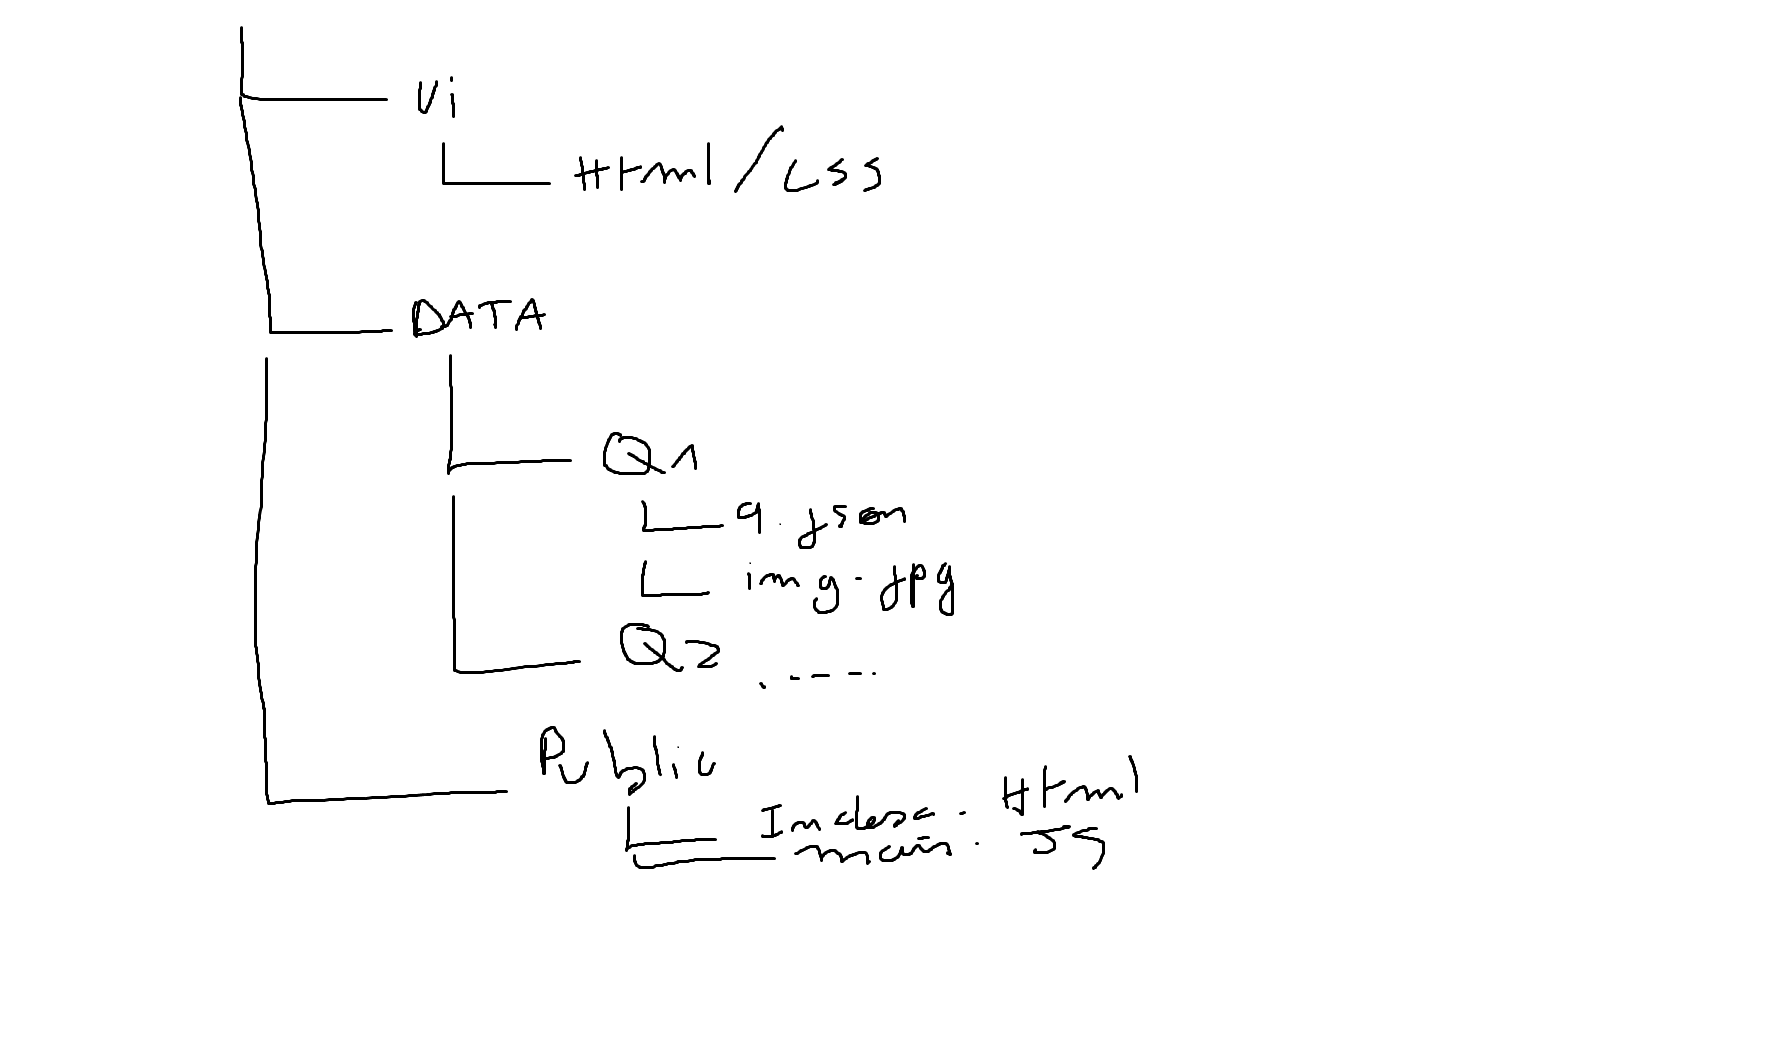 Ui
Html/css
DATA
Q1
q.json
img.jpg
Q2 .----.
Public
Index.Html
main.JS